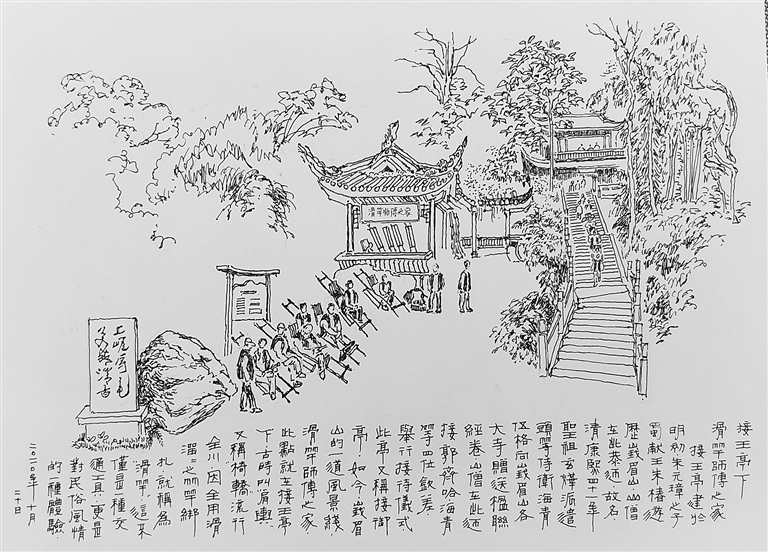 接王亭下
滑竿師傅之家
接王亭建於
明初朱元璋之子
蜀獻王朱椿遊
歷峨眉山山僧
在此恭迎故名
清康熙四十一年
聖祖玄燁派遣
頭等侍衛海青
伍格向峨眉山各
大寺贈送楹聯
經卷山僧在此迎
接郭齊哈海青
等四位欽差
舉行接待儀式
此亭又稱接御
亭如今峨眉
山的一道風景綫
滑竿師傅之家
此點就在接王亭
下古時叫肩輿
又稱椅轎流行
全川因全用滑
溜之竹竿綁
扎就稱為
滑竿這不
僅是一種交
通工具更是
對民俗風情
的一種體驗
二〇一〇年十月
二十日
滑竿師傅之家